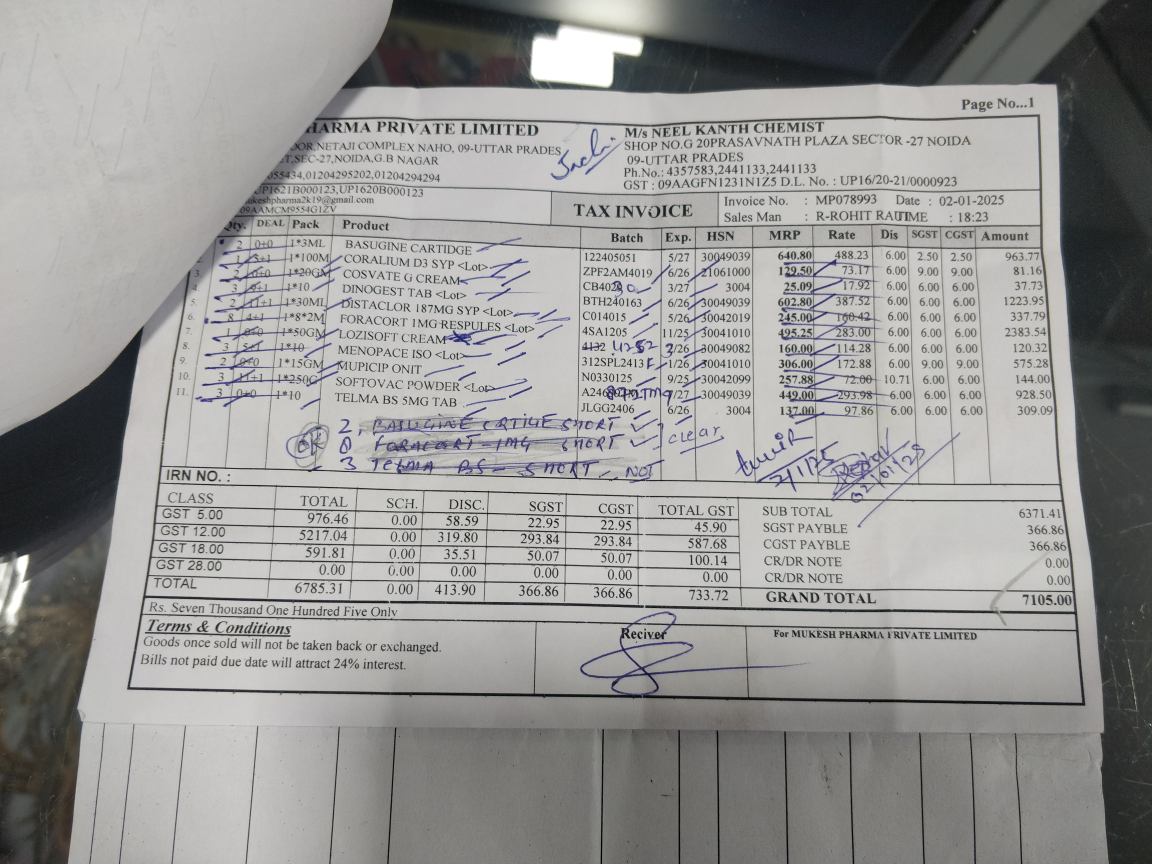 Page No...1
HARMA PRIVATE LIMITED
OOR,NETAJI COMPLEX NAHO, 09-UTTAR PRADES
ET,SEC-27,NOIDA,G.B NAGAR
055434,01204295202, 01204294294
UP1621B000123,UP1620B000123
mukeshpharma2k19@gmail.com
09AAMCM9554G1ZV
M/s NEEL KANTH CHEMIST
SHOP NO.G 20PRASAVNATH PLAZA SECTOR -27 NOIDA
09-UTTAR PRADES
Ph.No.: 4357583,2441133,2441133
GST : 09AAGFN1231N1Z5 D.L. No. : UP16/20-21/0000923
TAX INVOICE
Invoice No. : MP078993 Date : 02-01-2025
Sales Man : R-ROHIT RAUTIME : 18:23
Qty. DEAL Pack Product Batch Exp. HSN MRP Rate Dis SGST CGST Amount
2 0+0 1*3ML BASUGINE CARTIDGE 122405051 5/27 30049039 640.80 488.23 6.00 2.50 2.50 963.77
2. 1 3+1 1*100M CORALIUM D3 SYP <Lot> ZPF2AM4019 6/26 21061000 129.50 73.17 6.00 9.00 9.00 81.16
3. 2 0+0 1*20GM COSVATE G CREAM 3/27 3004 25.09 17.92 6.00 6.00 6.00 37.73
4. 3 9+1 1*10 DINOGEST TAB <Lot> BTH240163 6/26 30049039 602.80 387.52 6.00 6.00 6.00 1223.95
5. 2 11+1 1*30ML DISTACLOR 187MG SYP <Lot> C014015 5/26 30042019 245.00 160.42 6.00 6.00 6.00 337.79
6. 8 4+1 1*8*2M FORACORT 1MG RESPULES <Lot> 4SA1205 11/25 30041010 495.25 283.00 6.00 6.00 6.00 2383.54
7. 1 0+0 1*50GM LOZISOFT CREAM 4132 4252 3/26 30049082 160.00 114.28 6.00 6.00 6.00 120.32
8. 3 5+1 1*10 MENOPACE ISO <Lot> 312SPL2413F 1/26 30041010 306.00 172.88 6.00 9.00 9.00 575.28
9. 2 0+0 1*15GM MUPICIP ONIT N0330125 9/25 30042099 257.88 72.00 10.71 6.00 6.00 144.00
10. 3 11+1 1*250G SOFTOVAC POWDER <Lot> 7/27 30049039 449.00 293.98 6.00 6.00 6.00 928.50
11. 3 0+0 1*10 TELMA BS 5MG TAB JLGG2406 6/26 3004 137.00 97.86 6.00 6.00 6.00 309.09
OK
2, BASUGINE CRTIGE SHORT
FORACORT-1MG SHORT clear
3 TELMA BS- SHORT NOT
2/1/25
IRN NO. :
CLASS TOTAL SCH. DISC. SGST CGST TOTAL GST
GST 5.00 976.46 0.00 58.59 22.95 22.95 45.90
GST 12.00 5217.04 0.00 319.80 293.84 293.84 587.68
GST 18.00 591.81 0.00 35.51 50.07 50.07 100.14
GST 28.00 0.00 0.00 0.00 0.00 0.00 0.00
TOTAL 6785.31 0.00 413.90 366.86 366.86 733.72
SUB TOTAL 6371.41
SGST PAYBLE 366.86
CGST PAYBLE 366.86
CR/DR NOTE 0.00
CR/DR NOTE 0.00
GRAND TOTAL 7105.00
Rs. Seven Thousand One Hundred Five Only
Terms & Conditions
Goods once sold will not be taken back or exchanged.
Bills not paid due date will attract 24% interest.
Reciver
For MUKESH PHARMA PRIVATE LIMITED